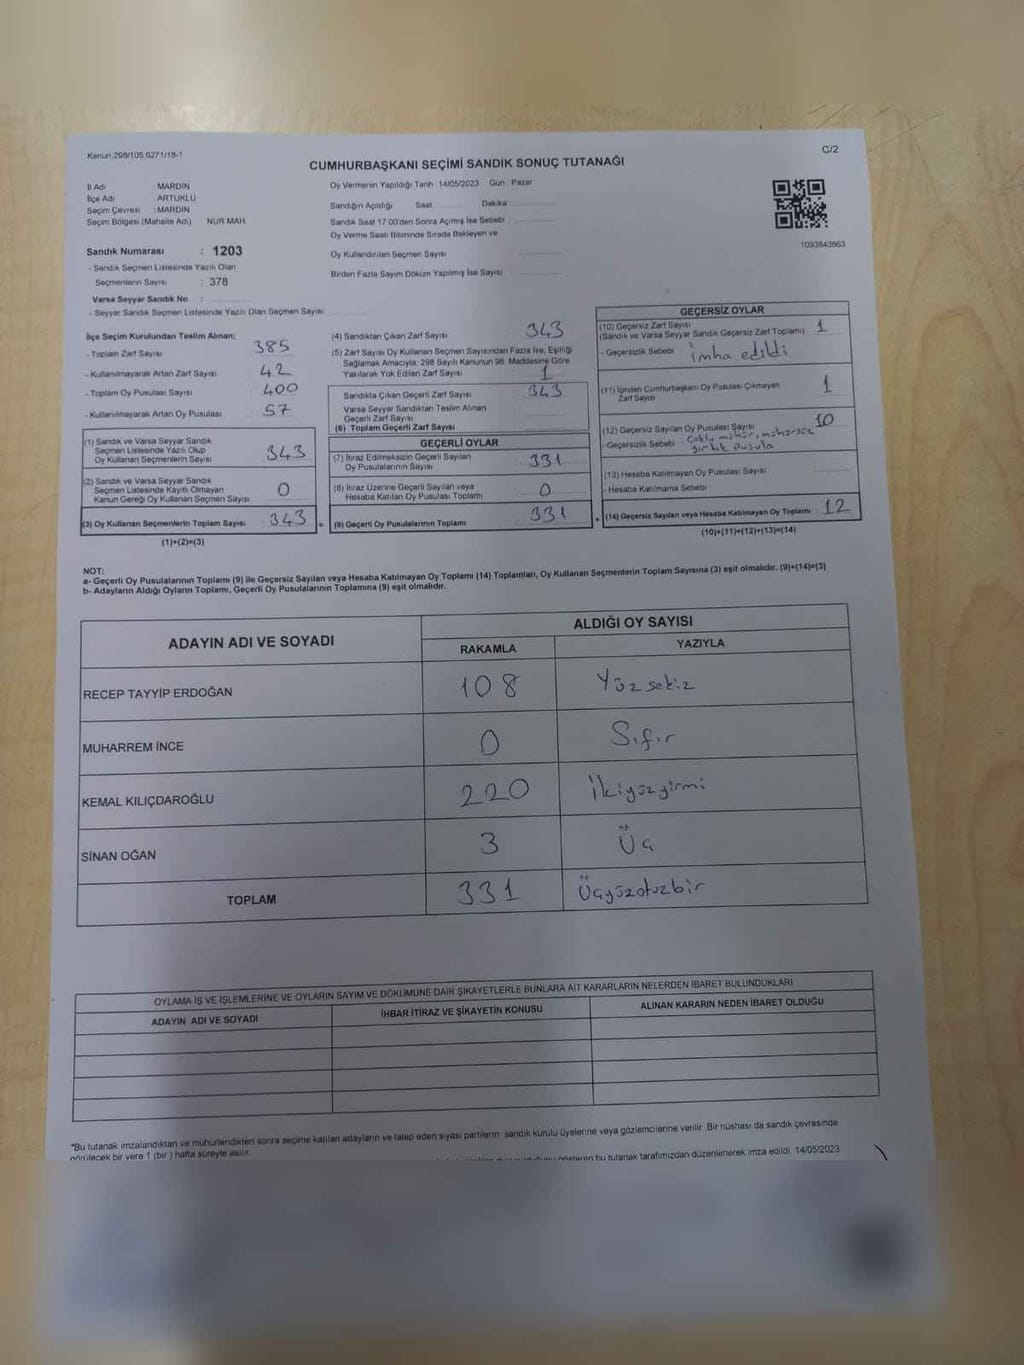 Kanun:298/105,6271/18-1
C/2
CUMHURBAŞKANI SEÇİMİ SANDIK SONUÇ TUTANAĞI
İl Adı MARDİN
İlçe Adı ARTUKLU
Seçim Çevresi : MARDİN
Seçim Bölgesi (Mahalle Adı) NUR MAH.
Oy Vermenin Yapıldığı Tarih : 14/05/2023 Gün : Pazar
Sandığın Açıldığı Saat Dakika
Sandık Saat 17:00'den Sonra Açılmış İse Sebebi
Oy Verme Saati Bitiminde Sırada Bekleyen ve
Oy Kullandırılan Seçmen Sayısı
Birden Fazla Sayım Döküm Yapılmış İse Sayısı
1093843863
Sandık Numarası : 1203
- Sandık Seçmen Listesinde Yazılı Olan
Seçmenlerin Sayısı : 378
Varsa Seyyar Sandık No :
- Seyyar Sandık Seçmen Listesinde Yazılı Olan Seçmen Sayısı
İlçe Seçim Kurulundan Teslim Alınan;
- Toplam Zarf Sayısı 385
- Kullanılmayarak Artan Zarf Sayısı 42
- Toplam Oy Pusulası Sayısı 400
- Kullanılmayarak Artan Oy Pusulası 57
(1) Sandık ve Varsa Seyyar Sandık
Seçmen Listesinde Yazılı Olup
Oy Kullanan Seçmenlerin Sayısı 343
(2) Sandık ve Varsa Seyyar Sandık
Seçmen Listesinde Kayıtlı Olmayan
Kanun Gereği Oy Kullanan Seçmen Sayısı 0
(3) Oy Kullanan Seçmenlerin Toplam Sayısı 343 =
(1)+(2)=(3)
(4) Sandıktan Çıkan Zarf Sayısı 343
(5) Zarf Sayısı Oy Kullanan Seçmen Sayısından Fazla İse, Eşitliği
Sağlamak Amacıyla; 298 Sayılı Kanunun 98. Maddesine Göre
Yakılarak Yok Edilen Zarf Sayısı 1
Sandıkta Çıkan Geçerli Zarf Sayısı 343
Varsa Seyyar Sandıktan Teslim Alınan
Geçerli Zarf Sayısı
(6) Toplam Geçerli Zarf Sayısı
GEÇERLİ OYLAR
(7) İtiraz Edilmeksizin Geçerli Sayılan
Oy Pusulalarının Sayısı 331
(8) İtiraz Üzerine Geçerli Sayılan veya
Hesaba Katılan Oy Pusulası Toplamı 0
(9) Geçerli Oy Pusulalarının Toplamı 331 +
GEÇERSİZ OYLAR
(10) Geçersiz Zarf Sayısı
(Sandık ve Varsa Seyyar Sandık Geçersiz Zarf Toplamı) 1
- Geçersizlik Sebebi : imha edildi
(11) İçinden Cumhurbaşkanı Oy Pusulası Çıkmayan
Zarf Sayısı 1
(12) Geçersiz Sayılan Oy Pusulası Sayısı 10
- Geçersizlik Sebebi : Çoklu mühür, mühürsüz
yırtık pusula
(13) Hesaba Katılmayan Oy Pusulası Sayısı
- Hesaba Katılmama Sebebi
(14) Geçersiz Sayılan veya Hesaba Katılmayan Oy Toplamı : 12
(10)+(11)+(12)+(13)=(14)
NOT:
a- Geçerli Oy Pusulalarının Toplamı (9) ile Geçersiz Sayılan veya Hesaba Katılmayan Oy Toplamı (14) Toplamları, Oy Kullanan Seçmenlerin Toplam Sayısına (3) eşit olmalıdır. (9)+(14)=(3)
b- Adayların Aldığı Oyların Toplamı, Geçerli Oy Pusulalarının Toplamına (9) eşit olmalıdır.
ADAYIN ADI VE SOYADI
ALDIĞI OY SAYISI
RAKAMLA YAZIYLA
RECEP TAYYİP ERDOĞAN 108 Yüzsekiz
MUHARREM İNCE 0 Sıfır
KEMAL KILIÇDAROĞLU 220 İkiyüzyirmi
SİNAN OĞAN 3 Üç
TOPLAM 331 Üçyüzotuzbir
OYLAMA İŞ VE İŞLEMLERİNE VE OYLARIN SAYIM VE DÖKÜMÜNE DAİR ŞİKAYETLERLE BUNLARA AİT KARARLARIN NELERDEN İBARET BULUNDUKLARI
ADAYIN ADI VE SOYADI İHBAR İTİRAZ VE ŞİKAYETİN KONUSU ALINAN KARARIN NEDEN İBARET OLDUĞU
*Bu tutanak imzalandıktan ve mühürlendikten sonra seçime katılan adayların ve talep eden siyasi partilerin sandık kurulu üyelerine veya gözlemcilerine verilir. Bir nüshası da sandık çevresinde
görülecek bir yere 1 (bir) hafta süreyle asılır.
bu tutanak tarafımızdan düzenlenerek imza edildi. 14/05/2023